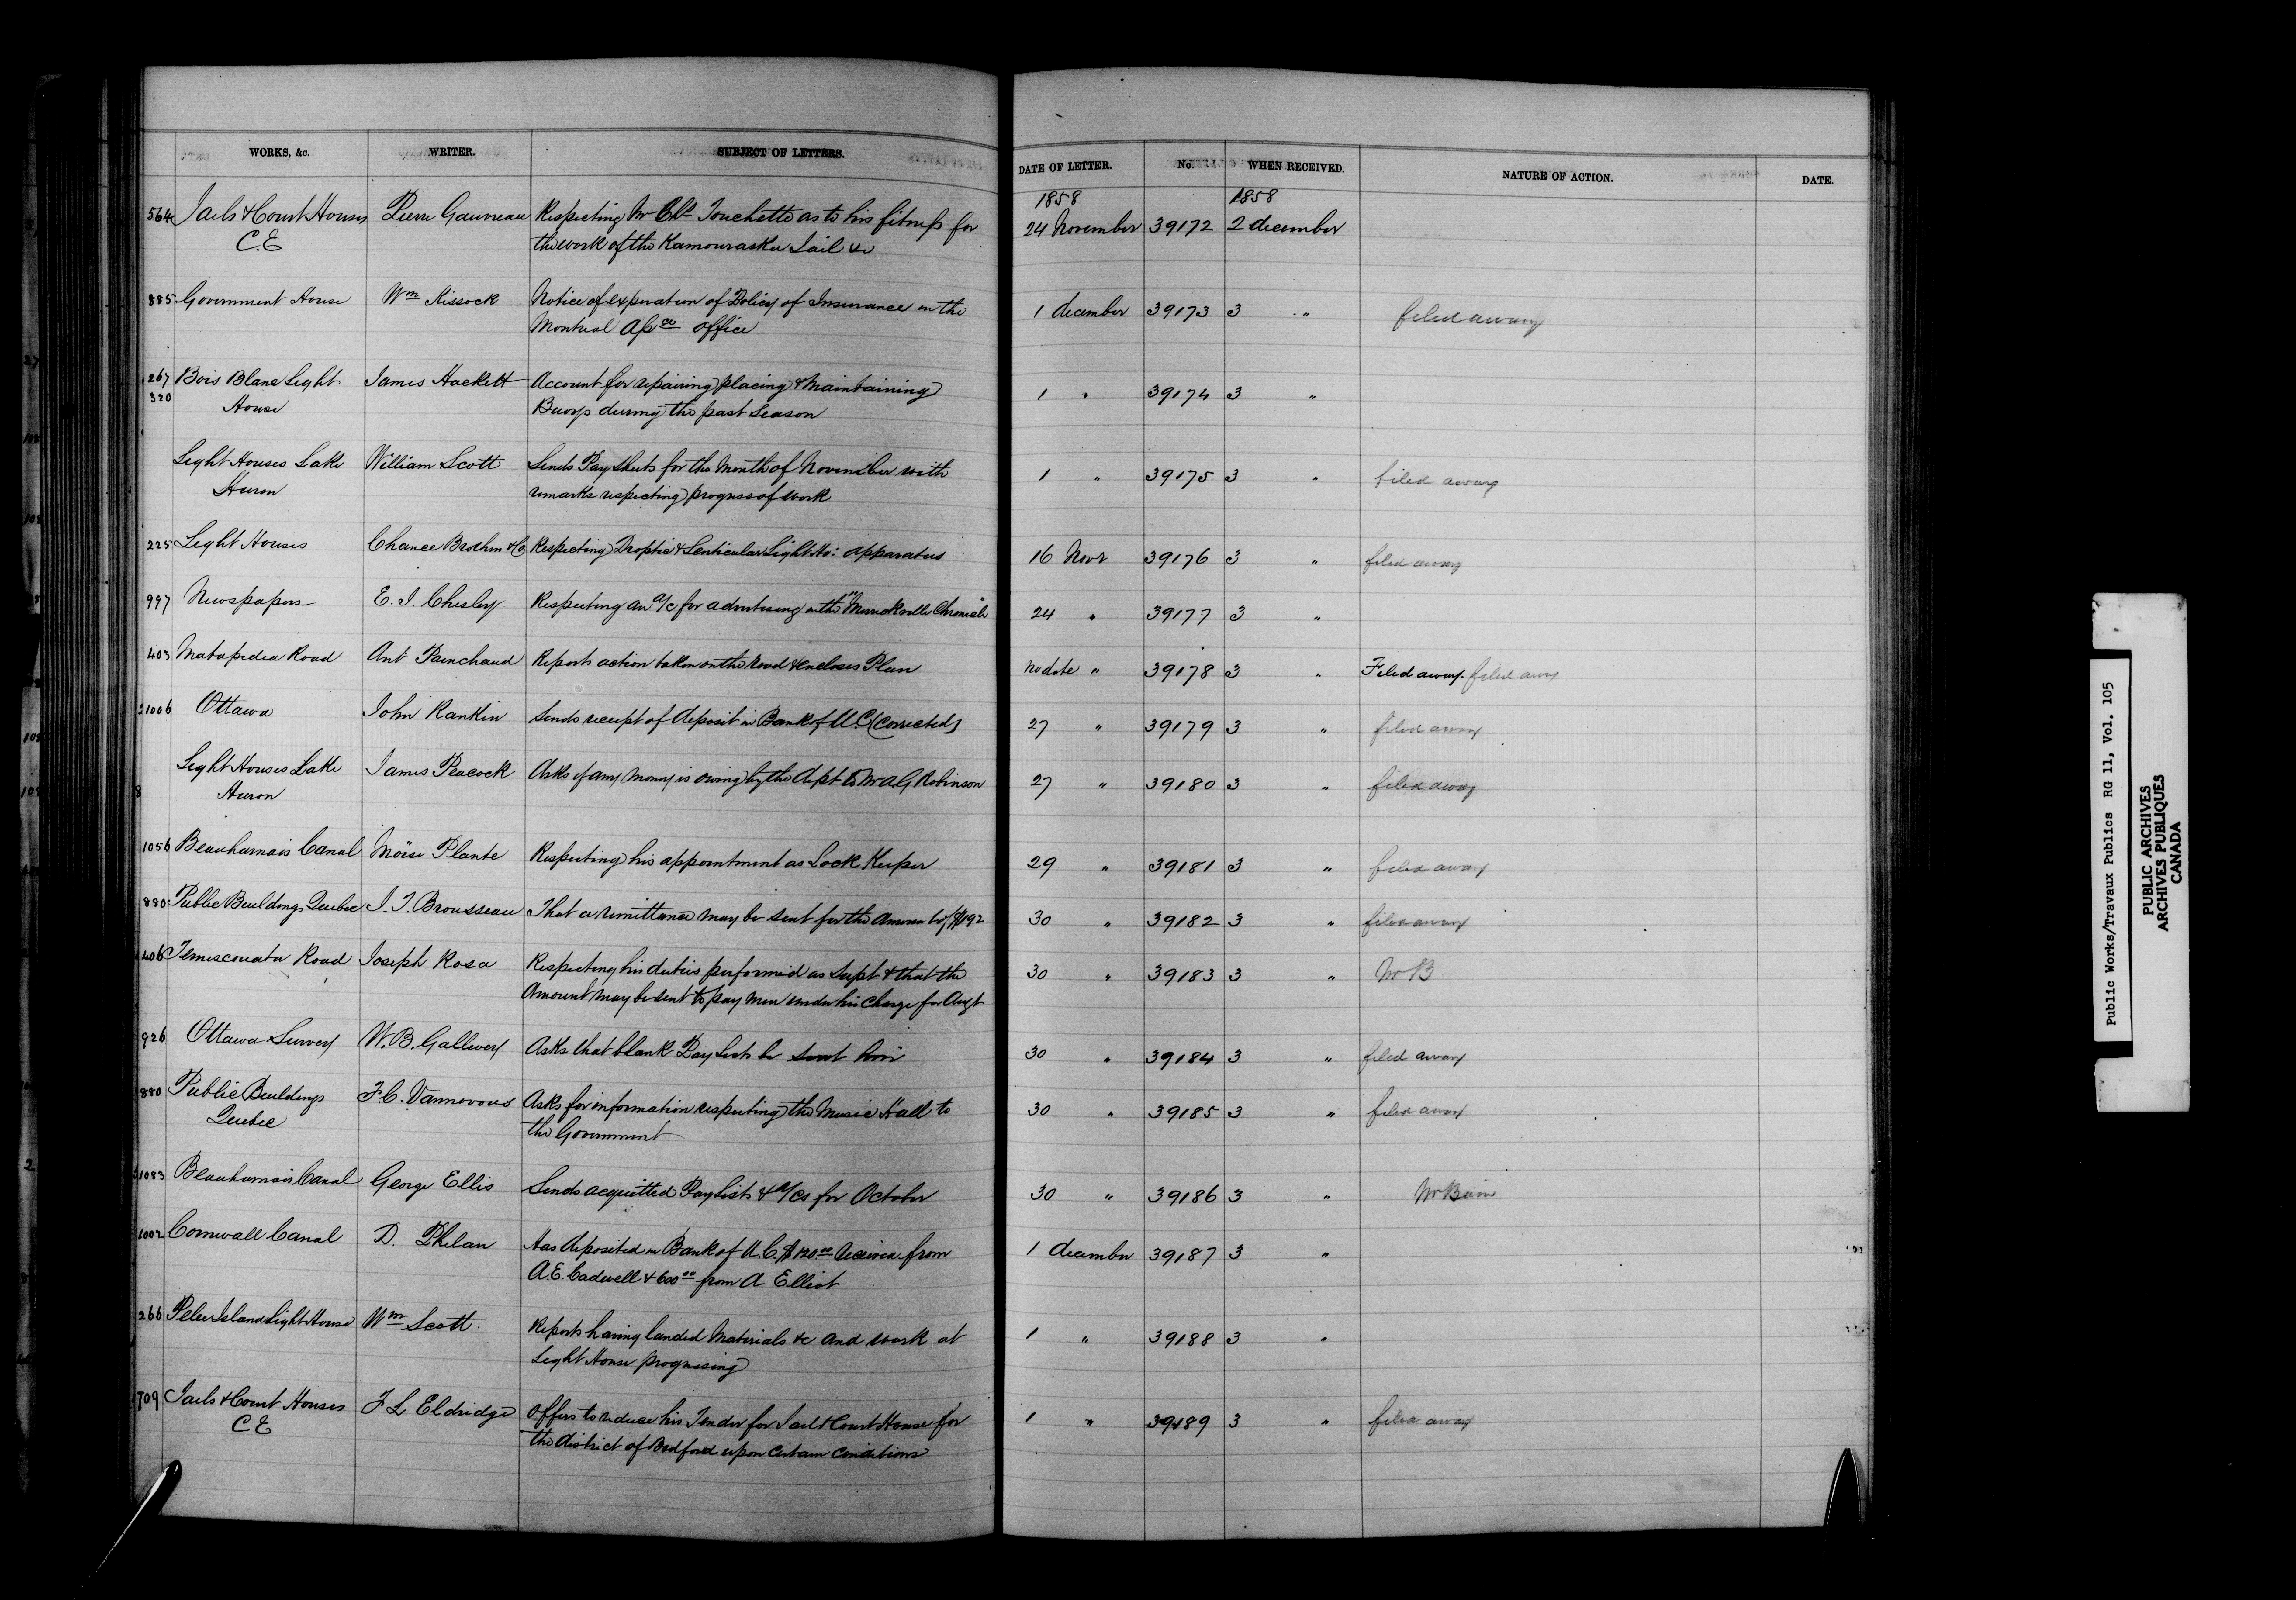 WORKS, &c. WRITER. SUBJECT OF LETTERS. DATE OF LETTER. No. WHEN RECEIVED. NATURE OF ACTION. DATE.
1858 1858
564 Jails & Court Houses Pierre Gauvreau Respecting Mr Chs Touchette as to his fitness for 24 November 39172 2 december
C.E the work of the Kamouraska Jail &c
885 Government House Wm Kissock Notice of expiration of Policy of Insurance in the 1 december 39173 3 " filed away
Montreal Office
267 Bois Blanc Light James Hackett Account for repairing placing & Maintaining 1 " 39174 3 "
320 House Buoys during the past Season
Light Houses Lake William Scott Sends Pay Sheets for the Month of November with 1 " 39175 3 " filed away
Huron remarks respecting progress of work
225 Light Houses Chance Brothers & Co Respecting Dioptic & Lenticular Light Ho: apparatus 16 Novr 39176 3 " filed away
997 Newspapers E. J. Chesley Respecting an a/c for advertising in the "Merrickville Chronicle" 24 " 39177 3 "
403 Matapedia Road Ant Painchaud Reports action taken on the road & encloses Plan No date " 39178 3 " Filed away. filed away
1006 Ottawa John Rankin Sends receipt of deposit in Bank of U.C. (Corrected) 27 " 39179 3 " filed away
Light Houses Lake James Peacock Asks if any money is owing by the Dept to Mr A G Robinson 27 " 39180 3 " filed away
8 Huron
1056 Beauharnais Canal Moïse Plante Respecting his appointment as Lock Keeper 29 " 39181 3 " filed away
880 Public Buildings Quebec J. T. Brousseau That a remittance may be sent for the Amount of 30 " 39182 3 " filed away
406 Temiscouata Road Joseph Rosa Respecting his duties performed as Supt & that the 30 " 39183 3 " Mr B
Amount may be sent to pay men under his charge for Augt
926 Ottawa Survey W. B. Gallwey Asks that blank Pay Lists be sent him 30 " 39184 3 " filed away
880 Public Buildings F. C. Vannovous Asks for information respecting the Music Hall to 30 " 39185 3 " filed away
Quebec the Government
1083 Beauharnais Canal George Ellis Sends acquitted Pay Lists & a/cs for October 30 " 39186 3 "
1002 Cornwall Canal D. Phelan Has deposited in Bank of U.C. $120.00 received from 1 december 39187 3 "
A. E. Cadwell & 600.00 from A Elliot
266 Pelee Island Light House Wm Scott. Reports having landed Materials &c and work at 1 " 39188 3 "
Light House progressing
709 Jails & Court Houses F L Eldridge Offers to reduce his Tender for Jail & Court House for 1 " 39189 3 " filed away
C E the district of Bedford upon certain conditions
Public Works/Travaux Publics RG 11, Vol. 105
PUBLIC ARCHIVES
ARCHIVES PUBLIQUES
CANADA